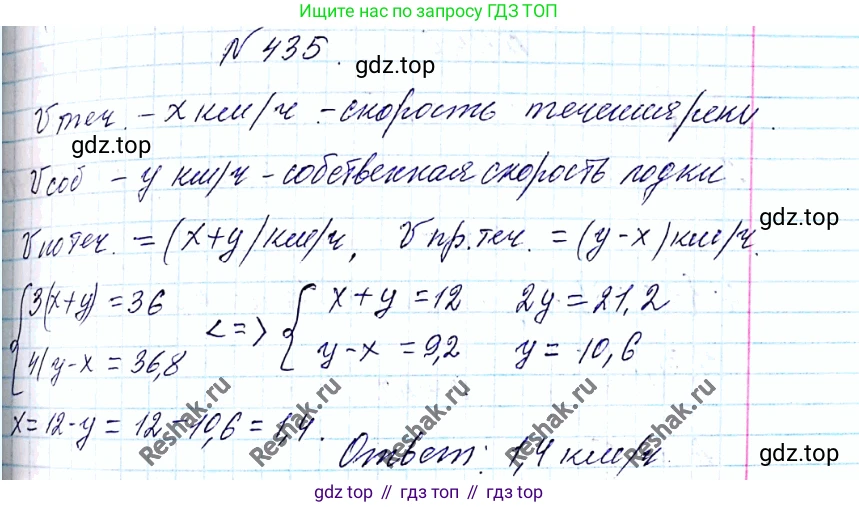 Ищите нас по запросу ГДЗ ТОП
N 435.
gdz.top
Vтеч. - x км/ч - скорость течения реки.
gdz.top
Vсоб - y км/ч - собственная скорость лодки
gdz.top
Vпо теч. = (x+y) км/ч, Vпр. теч. = (y-x) км/ч.
{3(x+y) = 36 <=> { x+y = 12 2y = 21,2
4(y-x = 36,8 y-x = 9,2 y = 10,6
x = 12-y = 12-10,6 = 1,4.
Reshak.ru Reshak.ru Reshak.ru Reshak.ru Reshak.ru
Ответ: 1,4 км/ч
gdz.top
gdz.top // гдз топ // гдз.топ